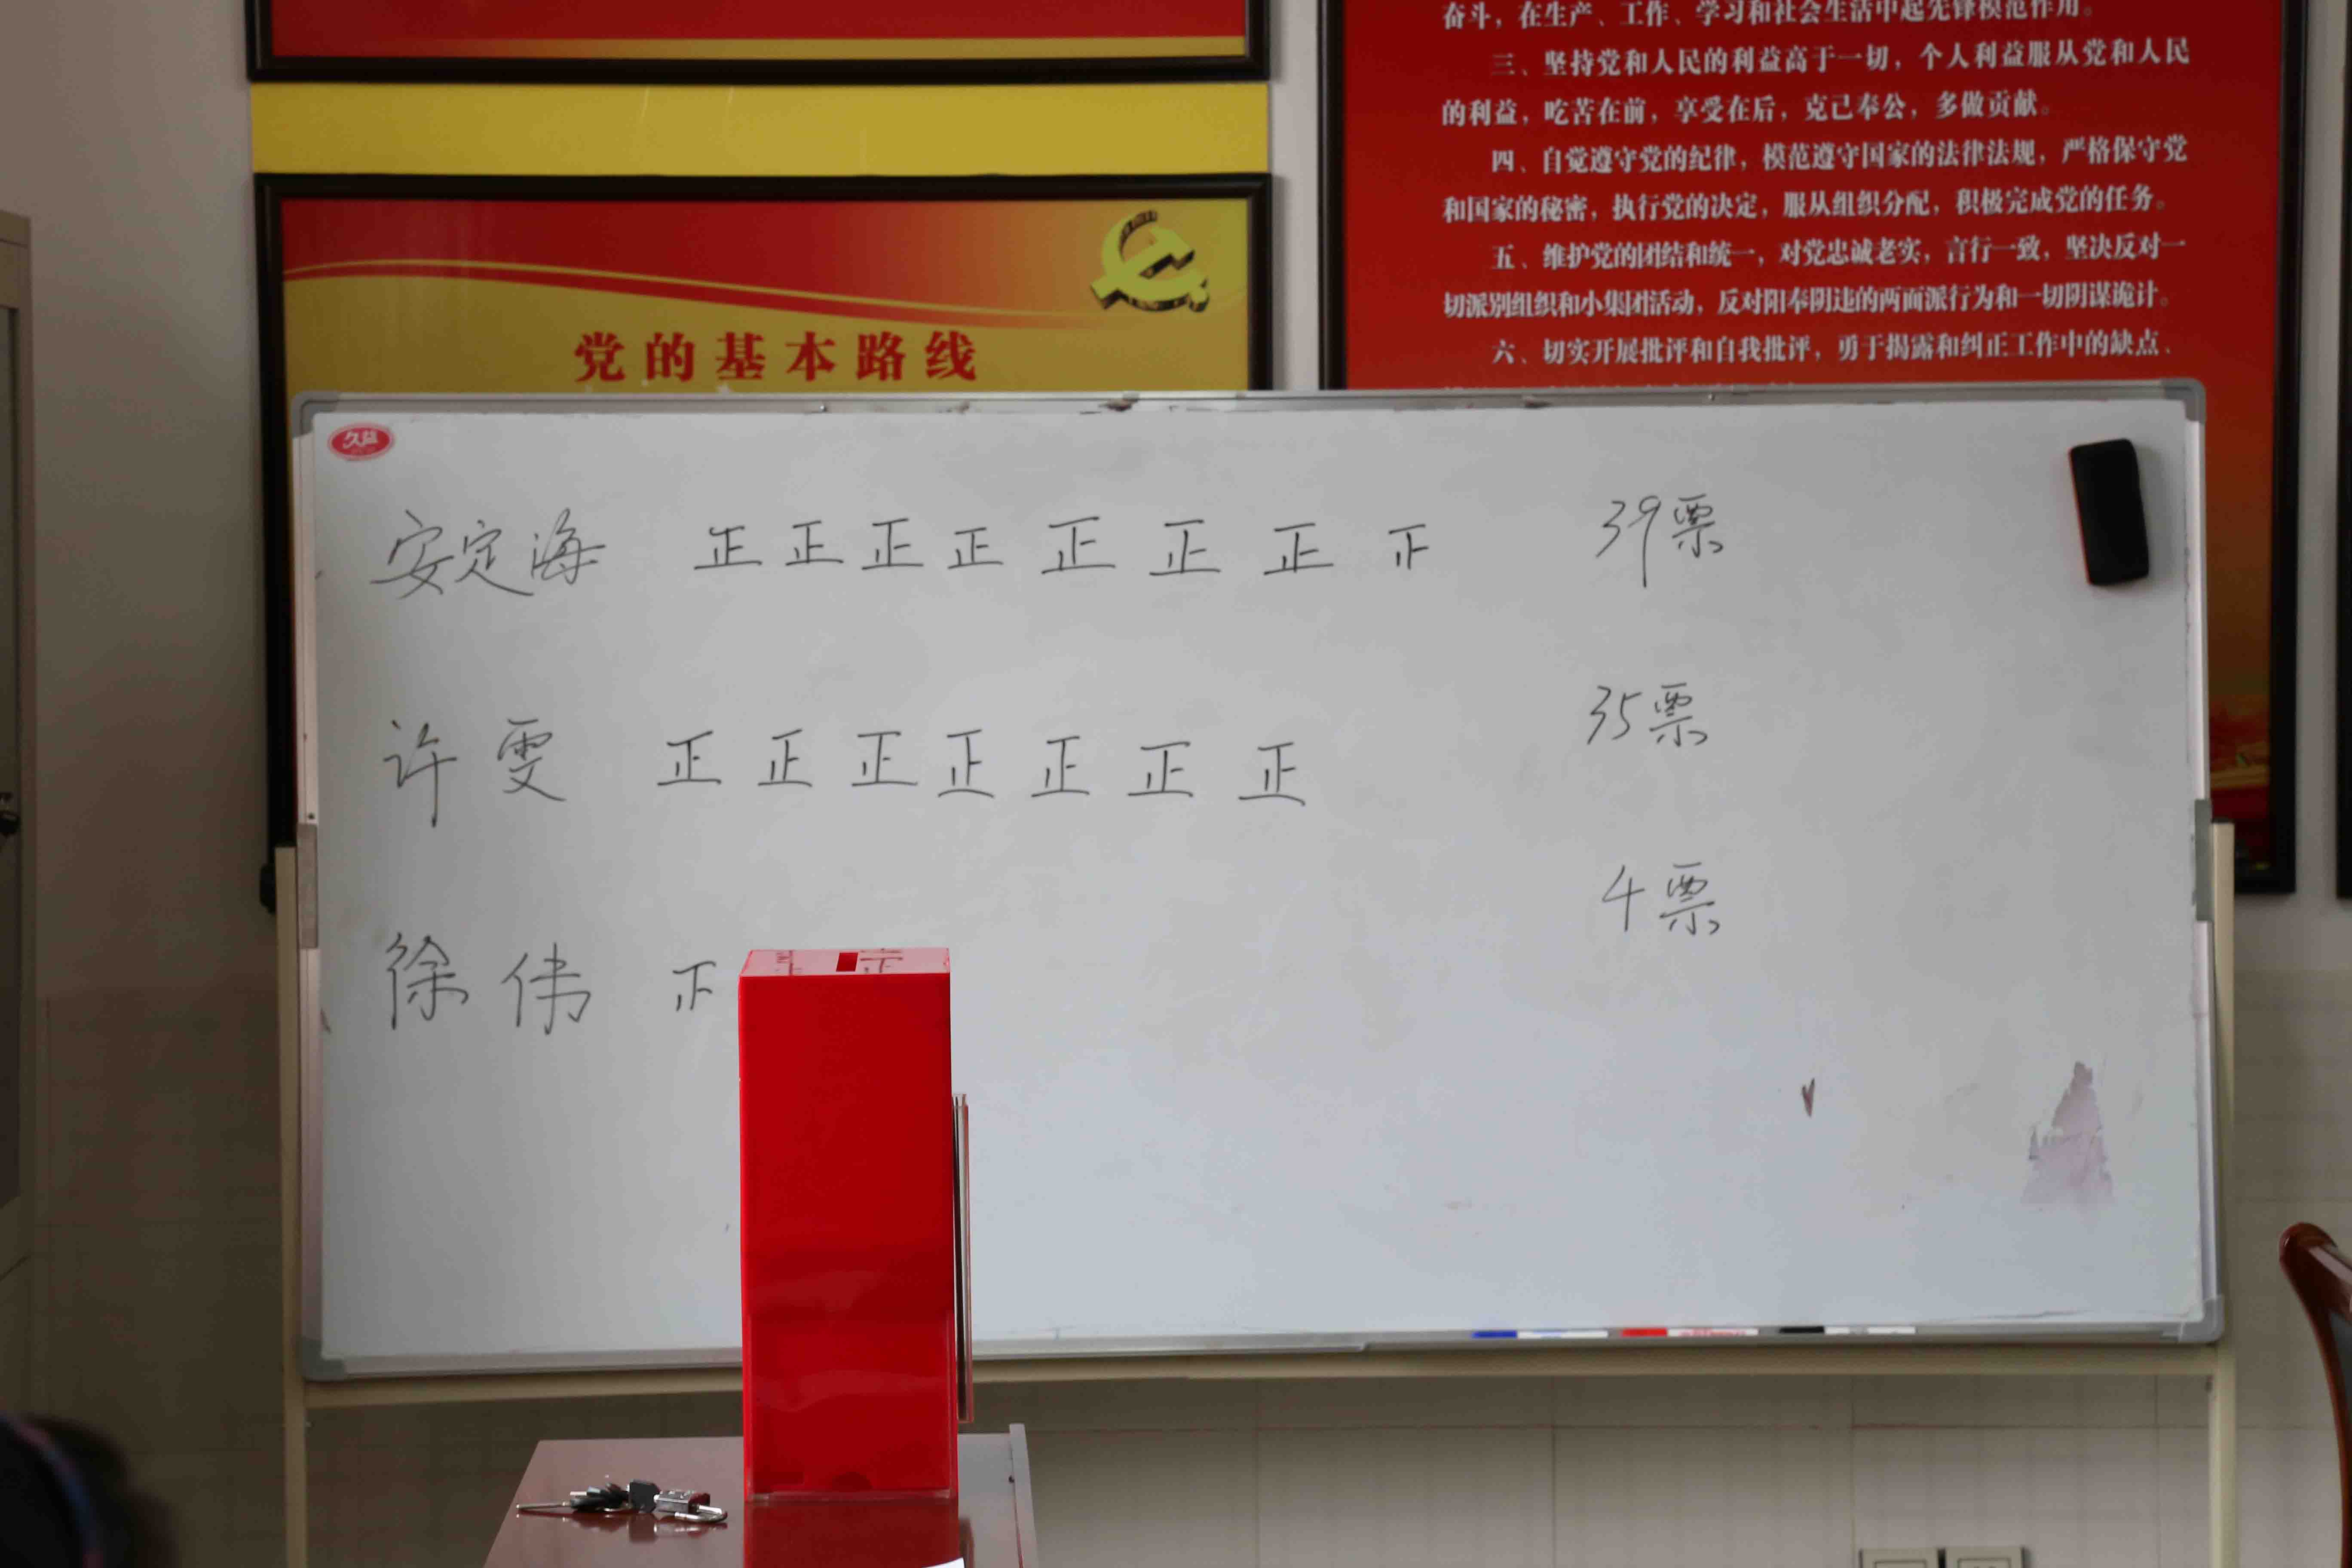 奋斗，在生产、工作、学习和社会生活中起先锋模范作用。
三、坚持党和人民的利益高于一切，个人利益服从党和人民
的利益，吃苦在前，享受在后，克己奉公，多做贡献。
四、自觉遵守党的纪律，模范遵守国家的法律法规，严格保守党
和国家的秘密，执行党的决定，服从组织分配，积极完成党的任务。
五、维护党的团结和统一，对党忠诚老实，言行一致，坚决反对一
切派别组织和小集团活动，反对阳奉阴违的两面派行为和一切阴谋诡计。
六、切实开展批评和自我批评，勇于揭露和纠正工作中的缺点、
党的基本路线
久益
安定海 正正正正正正正正 39票
许雯 正正正正正正正 35票
徐伟 正 4票